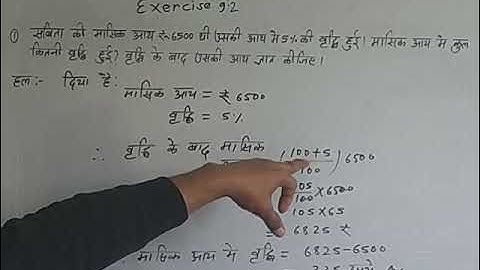 Exercise 9.2
① सविता की मासिक आय ₹ 6500 थी उसकी आय में 5% की वृद्धि हुई। मासिक आय में कुल
कितनी वृद्धि हुई? वृद्धि के बाद उसकी आय ज्ञात कीजिए।
हल:- दिया है:
मासिक आय = ₹ 6500
वृद्धि = 5%
∴ वृद्धि के बाद मासिक
(100+5/100) 6500
105/100 × 6500
105 × 65
= 6825 ₹
मासिक आय में वृद्धि = 6825-6500